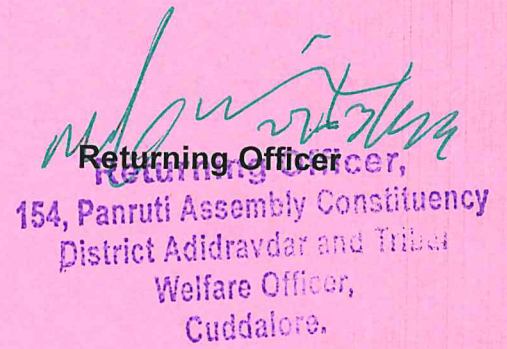 Returning Officer
Returning Officer,
154, Panruti Assembly Constituency
District Adidravdar and Tribal
Welfare Officer,
Cuddalore.